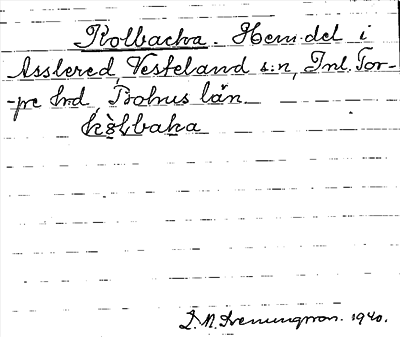 Kolbacka. Hem.del i
Asslered, Vesteland s:n, Inl. Tor-
-pe hrd Bohus län
kòlbaka
1940.